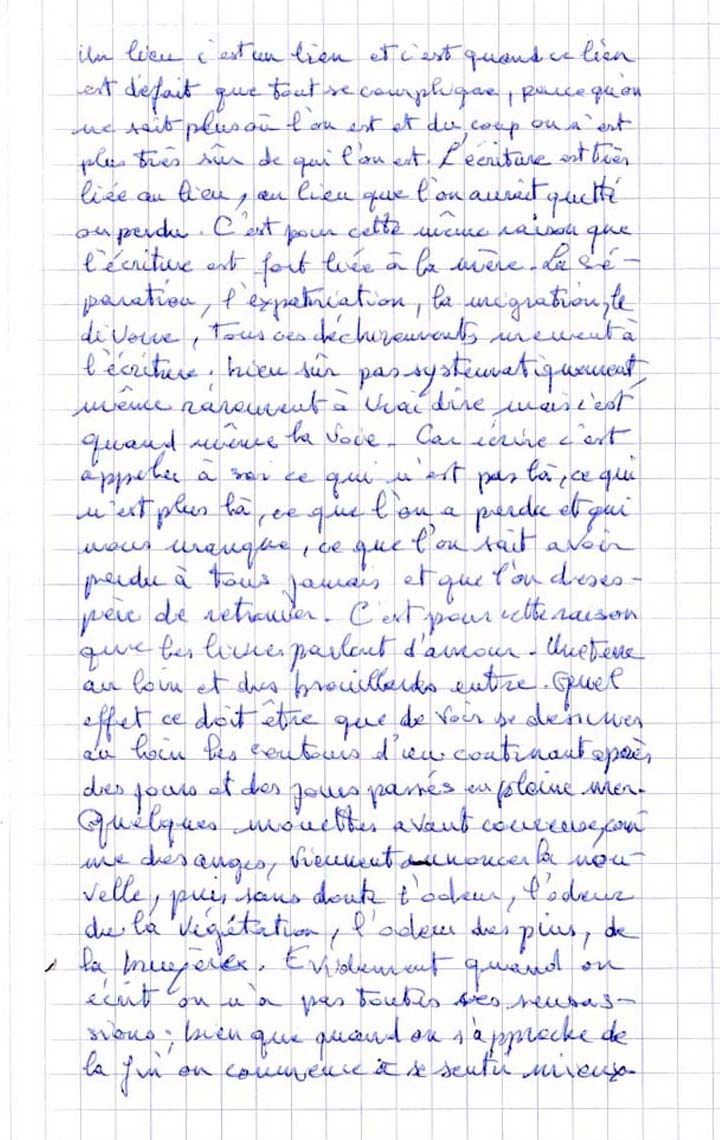 Un lieu c'est un lien et c'est quand ce lien
est défait que tout se complique, parce qu'on
ne sait plus où l'on est et du coup on n'est
plus très sûr de qui l'on est. L'écriture est très
liée au lieu, au lieu que l'on aurait quitté
ou perdu. C'est pour cette même raison que
l'écriture est fort liée à la mère. La sé-
paration, l'expatriation, la migration, le
divorce, tous ces déchirements mènent à
l'écriture. bien sûr pas systématiquement,
même rarement à vrai dire mais c'est
quand même la voie. Car écrire c'est
appeler à soi ce qui n'est pas là, ce qui
n'est plus là, ce que l'on a perdu et qui
nous manque, ce que l'on sait avoir
perdu à tous jamais et que l'on déses-
père de retrouver. C'est pour cette raison
que les livres parlent d'amour. Une terre
au loin et des brouillards entre. Quel
effet ce doit être que de voir se dessiner
au loin les contours d'un continent après
des jours et des jours passés en pleine mer.
Quelques mouettes avant coureuse, com
me des anges, viennent annoncer la nou-
velle, puis sans doute l'odeur, l'odeur
de la végétation, l'odeur des pins, de
la bruyère. Evidement quand on
écrit on n'a pas toutes ces sensas-
sions; bien que quand on s'approche de
la fin on commence à se sentir mieux